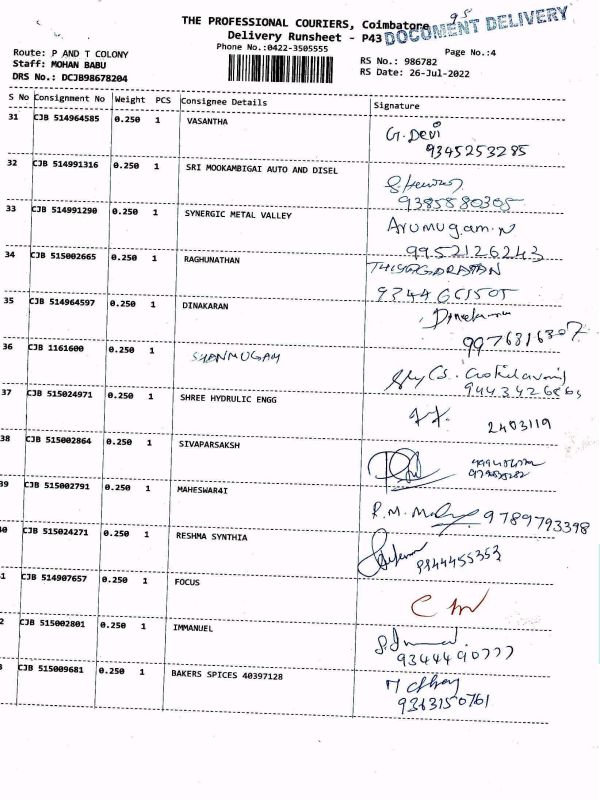 95
THE PROFESSIONAL COURIERS, Coimbatore
DOCUMENT DELIVERY
Delivery Runsheet - P43
Phone No.:0422-3505555
Page No.:4
Route: P AND T COLONY
RS No.: 986782
Staff: MOHAN BABU
RS Date: 26-Jul-2022
DRS No.: DCJB98678204
S No Consignment No Weight PCS Consignee Details Signature
31 CJB 514964585 0.250 1 VASANTHA
G. Devi
9345253285
32 CJB 514991316 0.250 1 SRI MOOKAMBIGAI AUTO AND DISEL
9385580305
33 CJB 514991290 0.250 1 SYNERGIC METAL VALLEY
Arumugam.N
9952126243
34 CJB 515002665 0.250 1 RAGHUNATHAN
35 CJB 514964597 0.250 1 DINAKARAN
Dinakaran
9976816307
36 CJB 1161600 0.250 1 SHANMUGAM
37 CJB 515024971 0.250 1 SHREE HYDRULIC ENGG
2403119
38 CJB 515002864 0.250 1 SIVAPARSAKSH
39 CJB 515002791 0.250 1 MAHESWAR4I
R.M. 9789793398
0 CJB 515024271 0.250 1 RESHMA SYNTHIA
1 CJB 514907657 0.250 1 FOCUS
2 CJB 515002801 0.250 1 IMMANUEL
9344490777
3 CJB 515009681 0.250 1 BAKERS SPICES 40397128
9363150761